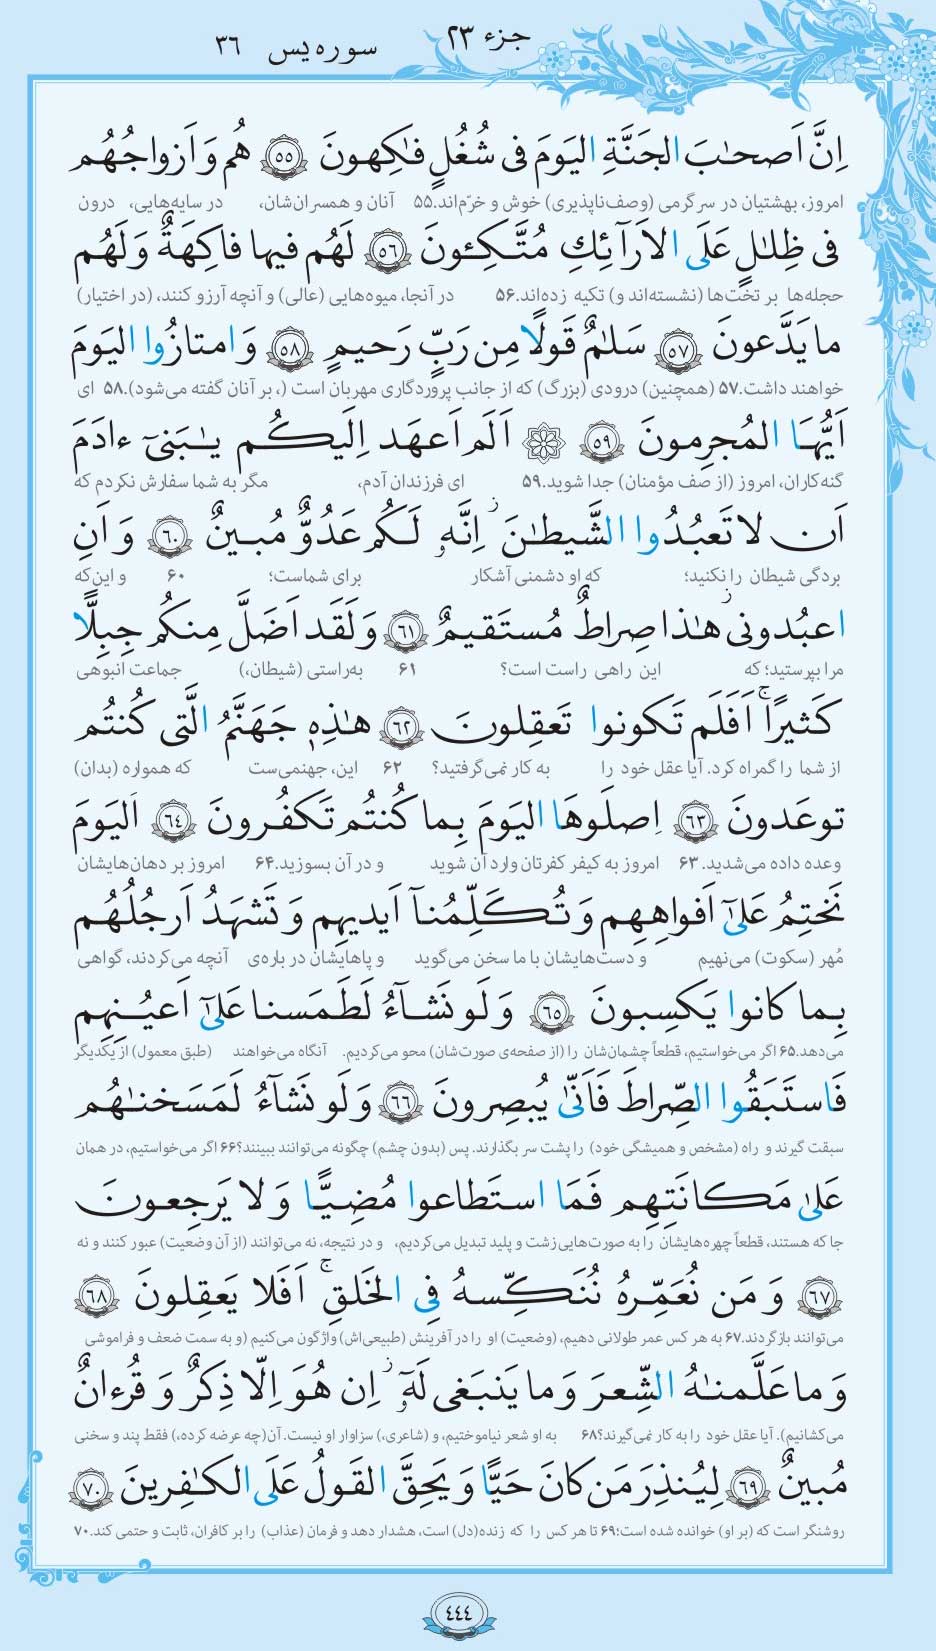 جزء ٢٣ سوره یس ٣٦
اِنَّ اَصحٰبَ الجَنَّةِ اليَومَ فى شُغُلٍ فاكِهونَ ﴿٥٥﴾ هُم وَ اَزواجُهُم
امروز، بهشتیان در سرگرمی (وصف‌ناپذیری) خوش و خرّم‌اند.۵۵ آنان و همسران‌شان، در سایه‌هایی، درون
فى ظِلٰلٍ عَلَى الاَرآئِكِ مُتَّكِـئونَ ﴿٥٦﴾ لَهُم فيها فاكِهَةٌ وَ لَهُم
حجله‌ها بر تخت‌ها (نشسته‌اند و) تکیه زده‌اند.۵۶ در آنجا، میوه‌هایی (عالی) و آنچه آرزو کنند، (در اختیار)
ما يَدَّعونَ ﴿٥٧﴾ سَلٰمٌ قَولًا مِن رَبٍّ رَحيمٍ ﴿٥٨﴾ وَ امتازُوا اليَومَ
خواهند داشت.۵۷ (همچنین) درودی (بزرگ) که از جانب پروردگاری مهربان است (، بر آنان گفته می‌شود).۵۸ ای
اَيُّهَا المُجرِمونَ ﴿٥٩﴾ اَلَم اَعهَد اِلَيكُم يٰبَنىٓ ءادَمَ
گنه‌کاران، امروز (از صف مؤمنان) جدا شوید.۵۹ ای فرزندان آدم، مگر به شما سفارش نکردم که
اَن لا تَعبُدُوا الشَّيطٰنَ ۖ اِنَّهٗ لَكُم عَدُوٌّ مُبينٌ ﴿٦٠﴾ وَ اَنِ
بردگی شیطان را نکنید؛ که او دشمنی آشکار برای شماست؛ ۶۰ و این‌که
اعبُدونى ۚ هٰذا صِراطٌ مُستَقيمٌ ﴿٦١﴾ وَ لَقَد اَضَلَّ مِنكُم جِبِلًّا
مرا بپرستید؛ که این راهی راست است؟ ۶۱ به‌راستی (شیطان،) جماعت انبوهی
كَثيرًا ۖ اَفَلَم تَكونوا تَعقِلونَ ﴿٦٢﴾ هٰذِهٖ جَهَنَّمُ الَّتى كُنتُم
از شما را گمراه کرد. آیا عقل خود را به کار نمی‌گرفتید؟ ۶۲ این، جهنمی‌ست که همواره (بدان)
توعَدونَ ﴿٦٣﴾ اِصلَوهَا اليَومَ بِما كُنتُم تَكفُرونَ ﴿٦٤﴾ اَليَومَ
وعده داده می‌شدید. ۶۳ امروز به کیفر کفرتان وارد آن شوید و در آن بسوزید.۶۴ امروز بر دهان‌هایشان
نَختِمُ عَلىٰٓ اَفواهِهِم وَ تُكَلِّمُنآ اَيديهِم وَ تَشهَدُ اَرجُلُهُم
مُهر (سکوت) می‌نهیم و دست‌هایشان با ما سخن می‌گوید و پاهایشان در باره‌ی آنچه می‌کردند، گواهی
بِما كانوا يَكسِبونَ ﴿٦٥﴾ وَ لَو نَشآءُ لَطَمَسنا عَلىٰٓ اَعيُنِهِم
می‌دهد.۶۵ اگر می‌خواستیم، قطعاً چشمان‌شان را (از صفحه‌ی صورت‌شان) محو می‌کردیم. آنگاه می‌خواهند (طبق معمول) از یکدیگر
فَاستَبَقُوا الصِّراطَ فَاَنّىٰ يُبصِرونَ ﴿٦٦﴾ وَ لَو نَشآءُ لَمَسَخنٰهُم
سبقت گیرند و راه (مشخص و همیشگی خود) را پشت سر بگذارند. پس (بدون چشم) چگونه می‌توانند ببینند؟۶۶ اگر می‌خواستیم، در همان
عَلىٰ مَكانَتِهِم فَمَا استَطاعوا مُضِيًّا وَ لا يَرجِعونَ
جا که هستند، قطعاً چهره‌هایشان را به صورت‌هایی زشت و پلید تبدیل می‌کردیم، و در نتیجه، نه می‌توانند (از آن وضعیت) عبور کنند و نه
﴿٦٧﴾ وَ مَن نُعَمِّرهُ نُنَكِّسهُ فِى الخَلقِ ۚ اَفَلا يَعقِلونَ ﴿٦٨﴾
می‌توانند بازگردند.۶۷ به هر کس عمر طولانی دهیم، (وضعیت) او را در آفرینش (طبیعی‌اش) واژگون می‌کنیم (و به سمت ضعف و فراموشی
وَ ما عَلَّمنٰهُ الشِّعرَ وَ ما يَنبَغى لَهٗٓ ۚ اِن هُوَ اِلّا ذِكرٌ وَ قُرءانٌ
می‌کشانیم). آیا عقل خود را به کار نمی‌گیرند؟۶۸ به او شعر نیاموختیم، و (شاعری،) سزاوار او نیست. آن(چه عرضه کرده،) فقط پند و سخنی
مُبينٌ ﴿٦٩﴾ لِيُنذِرَ مَن كانَ حَيًّا وَ يَحِقَّ القَولُ عَلَى الكٰفِرينَ ﴿٧٠﴾
روشنگر است که (بر او) خوانده شده است؛۶۹ تا هر کس را که زنده(دل) است، هشدار دهد و فرمان (عذاب) را بر کافران، ثابت و حتمی کند.۷۰
٤٤٤